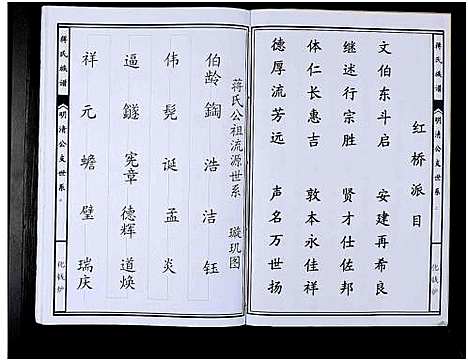 蒋氏族谱
《明清公支世系
化钱炉
红桥派目
文伯东斗启 安建再希良
继述行宗胜 贤才仕佐邦
体仁长惠吉 敦本永佳祥
德厚流芳远 声名万世扬
蒋氏公祖流源世系 璇玑图
伯龄 鋾 浩 洁 钰
伟 髡 诞 孟 炎
逼 鐩 宪章 德辉 道焕
祥 元 蟾 璧 瑞庆
蒋氏族谱
《明清公支世系
化钱炉